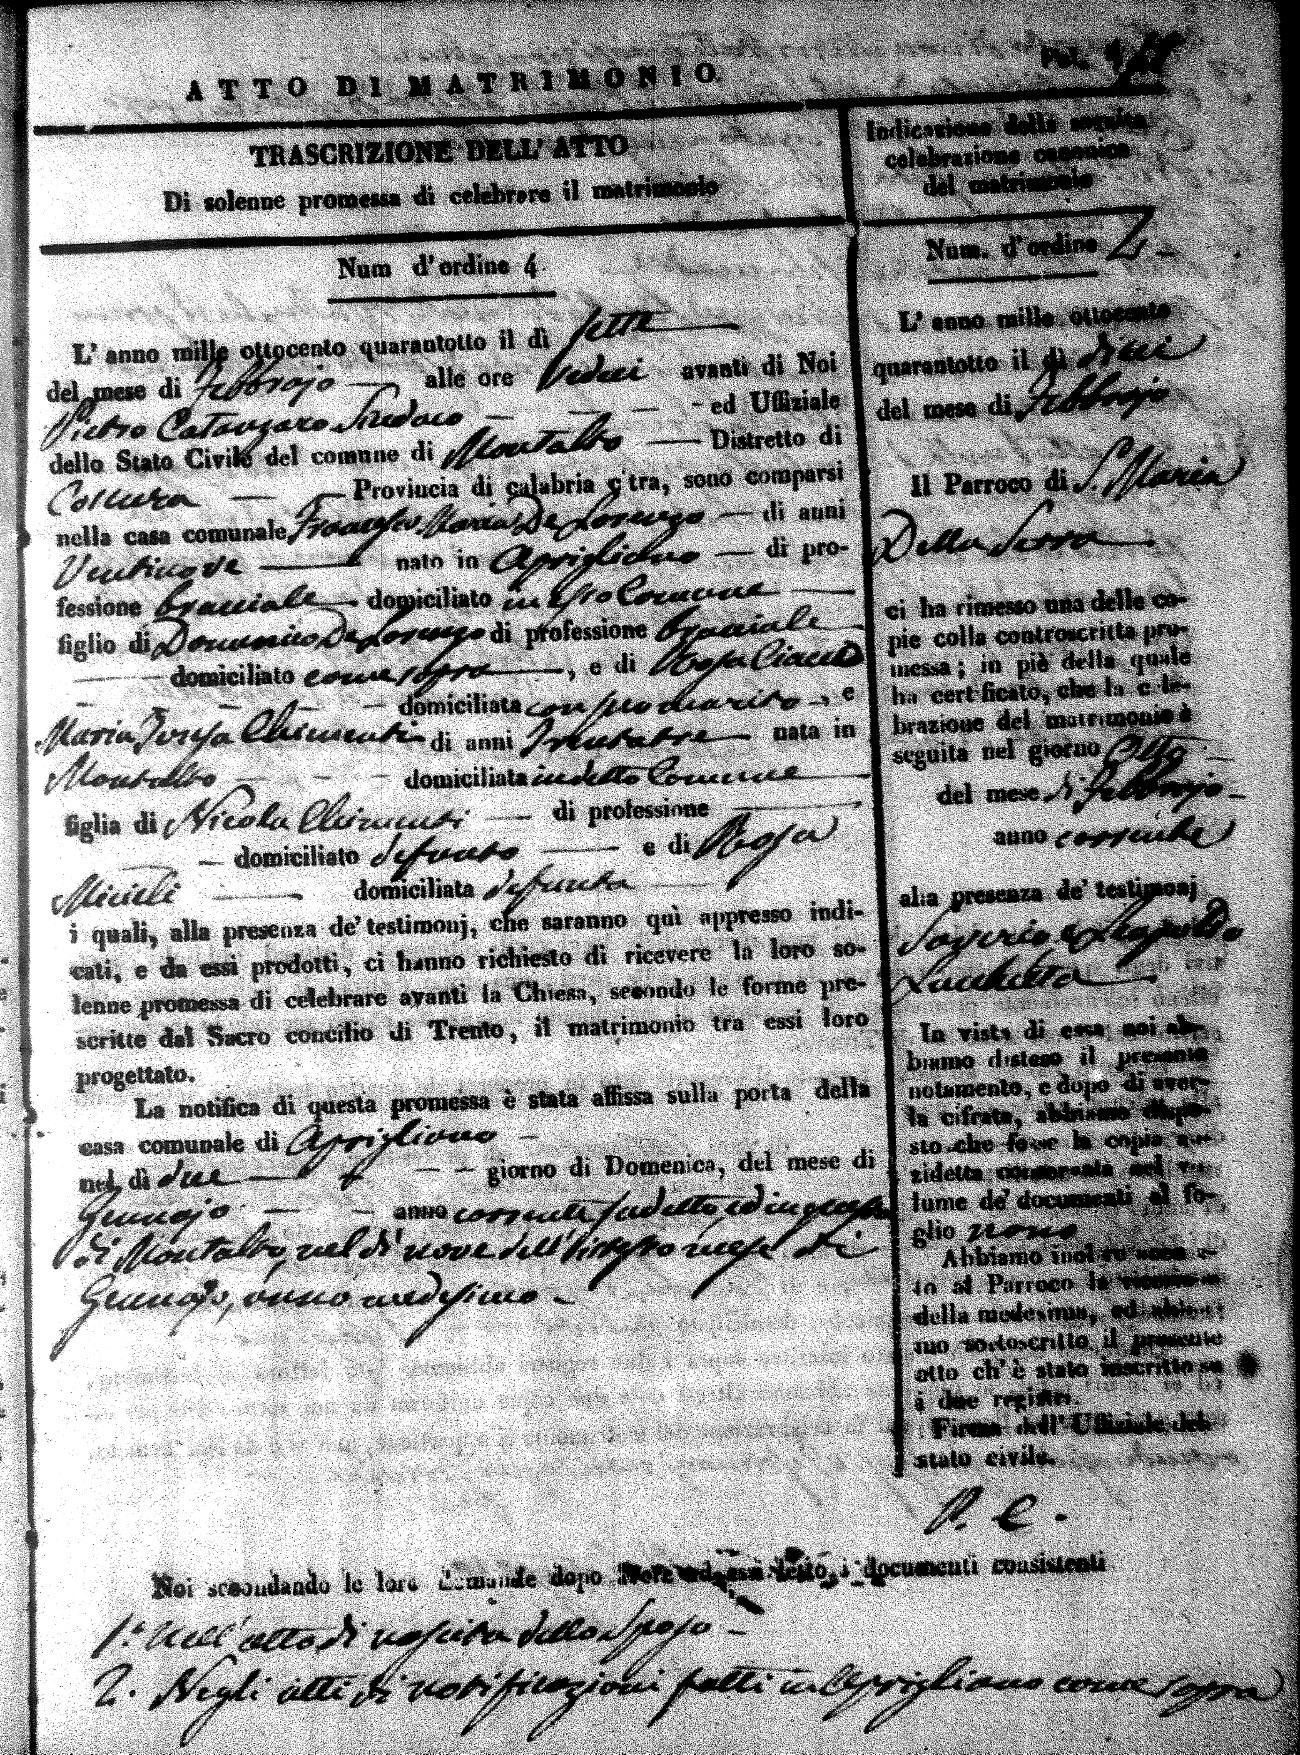 ATTO DI MATRIMONIO
TRASCRIZIONE DELL' ATTO
Di solenne promessa di celebrare il matrimonio
Num d'ordine 4.
L' anno mille ottocento quarantotto il dì sette
del mese di Febbrajo alle ore sedeci avanti di Noi
Pietro Catanzaro Sindaco ed Uffiziale
dello Stato Civile del comune di Montalto Distretto di
Cosenza Provincia di calabria c'tra, sono comparsi
nella casa comunale Francesco Maria De Lorenzo di anni
Ventinove nato in Aprigliano di pro-
fessione bracciale domiciliato in esso Comune
figlio di Domenico De Lorenzo di professione bracciale
domiciliato come sopra, e di Rosa
domiciliata con suo marito, e
Maria Teresa Chimenti di anni Trentatre nata in
Montalto domiciliata in detto Comune
figlia di Nicola Chimenti di professione
domiciliato defunto e di Rosa
Miceli domiciliata defunta
i quali, alla presenza de' testimonj, che saranno quì appresso indi-
cati, e da essi prodotti, ci hanno richiesto di ricevere la loro so-
lenne promessa di celebrare avanti la Chiesa, secondo le forme pre-
scritte dal Sacro concilio di Trento, il matrimonio tra essi loro
progettato.
La notifica di questa promessa è stata affissa sulla porta della
casa comunale di Aprigliano
nel dì due giorno di Domenica, del mese di
Gennajo anno corrente sudetto, ed in questa
di Montalto, nel dì nove dell'istesso mese di
Gennajo, anno medesimo
Indicazione della seguita
celebrazione canonica
del matrimonio
Num. d'ordine 2
L' anno mille ottocento
quarantotto il dì dieci
del mese di Febbrajo
Il Parroco di S. Maria
Della Serra
ci ha rimesso una delle co-
pie colla controscritta pro-
messa; in piè della quale
ha cert ficato, che la c le-
brazione del matrimonio è
seguita nel giorno Otto
del mese di Febbrajo
anno corrente
alla presenza de' testimonj
Saverio e Leopoldo
Lucchetta
In vista di essa noi ab-
biamo disteso il presente
notamento, e dopo di aver-
la cifrata, abbiamo dispo-
sto che fosse la copia an-
zidetta conservata nel vo-
lume de' documenti al fo-
glio nono
Abbiamo inol
to al Parroco la
della medesima, ed abbia-
mo sottoscritto il presente
atto ch' è stato inscritto su
i due registri.
Firma dell' Uffiziale dello
stato civile.
P. C.
Noi secondando le loro domande dopo letto, i documenti consistenti
1.° Nell'atto di nascita dello Sposo
2. Negli atti di notificazioni fatti in Aprigliano come sopra